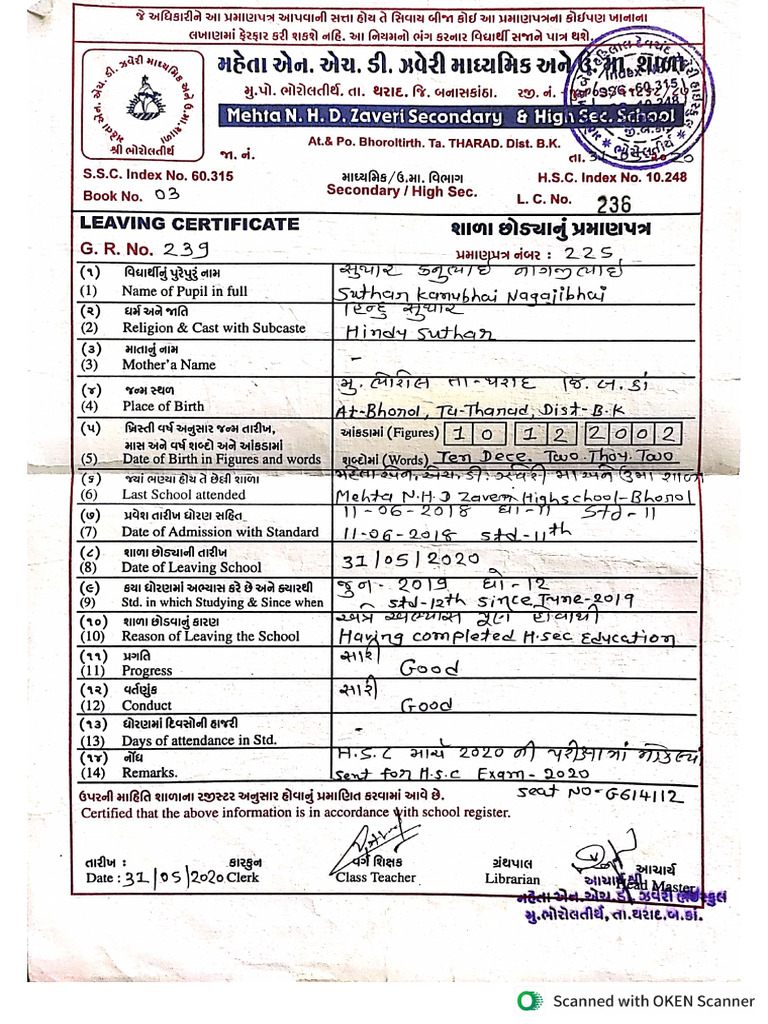 જે અધિકારીને આ પ્રમાણપત્ર આપવાની સત્તા હોય તે સિવાય બીજા કોઈ આ પ્રમાણપત્રના કોઈપણ ખાનાના
લખાણમાં ફેરફાર કરી શકશે નહિ. આ નિયમનો ભંગ કરનાર વિદ્યાર્થી સજાને પાત્ર થશે.
મહેતા એન. એચ. ડી. ઝવેરી માધ્યમિક અને ઉ. મા. શાળા
મુ.પો. ભોરોલતીર્થ. તા. થરાદ. જિ. બનાસકાંઠા. રજી. નં.
Mehta N. H. D. Zaveri Secondary & High Sec. School
શ્રી ભોરોલતીર્થ
At.& Po. Bhoroltirth. Ta. THARAD. Dist. B.K.
જા. નં. તા. 31-05-2020
S.S.C. Index No. 60.315 માધ્યમિક/ઉ.મા. વિભાગ H.S.C. Index No. 10.248
Book No. 03 Secondary / High Sec. L. C. No. 236
LEAVING CERTIFICATE શાળા છોડ્યાનું પ્રમાણપત્ર
G. R. No. 239 પ્રમાણપત્ર નંબર : 225
(૧) વિદ્યાર્થીનું પુરેપુરું નામ સુથાર કનુભાઈ નાગજીભાઈ
(1) Name of Pupil in full Suthar Kanubhai Nagajibhai
(૨) ધર્મ અને જાતિ હિન્દુ સુથાર
(2) Religion & Cast with Subcaste Hindu Suthar
(૩) માતાનું નામ
(3) Mother'a Name -
(૪) જન્મ સ્થળ મુ. ભોરોલ તા-થરાદ જિ. બ.કાં
(4) Place of Birth At-Bhorol, Ta-Tharad, Dist-B.K
(૫) ખ્રિસ્તી વર્ષ અનુસાર જન્મ તારીખ, આંકડામાં (Figures) 10 12 2002
માસ અને વર્ષ શબ્દો અને આંકડામાં
(5) Date of Birth in Figures and words શબ્દોમાં (Words) Ten Dece. Two. Thoy. Two
(૬) જ્યાં ભણ્યા હોય તે છેલ્લી શાળા મહેતા એન. એચ. ડી. ઝવેરી મા અને ઉમા શાળા
(6) Last School attended Mehta N.H.D Zaveri Highschool-Bhorol
(૭) પ્રવેશ તારીખ ધોરણ સહિત 11-06-2018 ધો-11 Std-11
(7) Date of Admission with Standard 11-06-2018 std-11th
(૮) શાળા છોડ્યાની તારીખ
(8) Date of Leaving School 31/05/2020
(૯) કયા ધોરણમાં અભ્યાસ કરે છે અને ક્યારથી જુન-2019 ધો-12
(9) Std. in which Studying & Since when std-12th since June-2019
(૧૦) શાળા છોડવાનું કારણ અત્રે અભ્યાસ પૂર્ણ હોવાથી
(10) Reason of Leaving the School Having completed H.sec Education
(૧૧) પ્રગતિ સારી
(11) Progress Good
(૧૨) વર્તણુંક સારી
(12) Conduct Good
(૧૩) ધોરણમાં દિવસોની હાજરી
(13) Days of attendance in Std. -
(૧૪) નોંધ H.S.C માર્ચ 2020 ની પરીક્ષામાં
(14) Remarks. sent for H.s.c Exam-2020
ઉપરની માહિતિ શાળાના રજીસ્ટર અનુસાર હોવાનું પ્રમાણિત કરવામાં આવે છે. seat NO-G614112
Certified that the above information is in accordance with school register.
તારીખ : કારકુન વર્ગ શિક્ષક ગ્રંથપાલ આચાર્ય
Date : 31/05/2020 Clerk Class Teacher Librarian Head Master
આચાર્ય શ્રી
મહેતા એન.એચ.ડી. ઝવેરી હાઈસ્કુલ
મુ.ભોરોલતીર્થ, તા.થરાદ.બ.કાં.
Scanned with OKEN Scanner